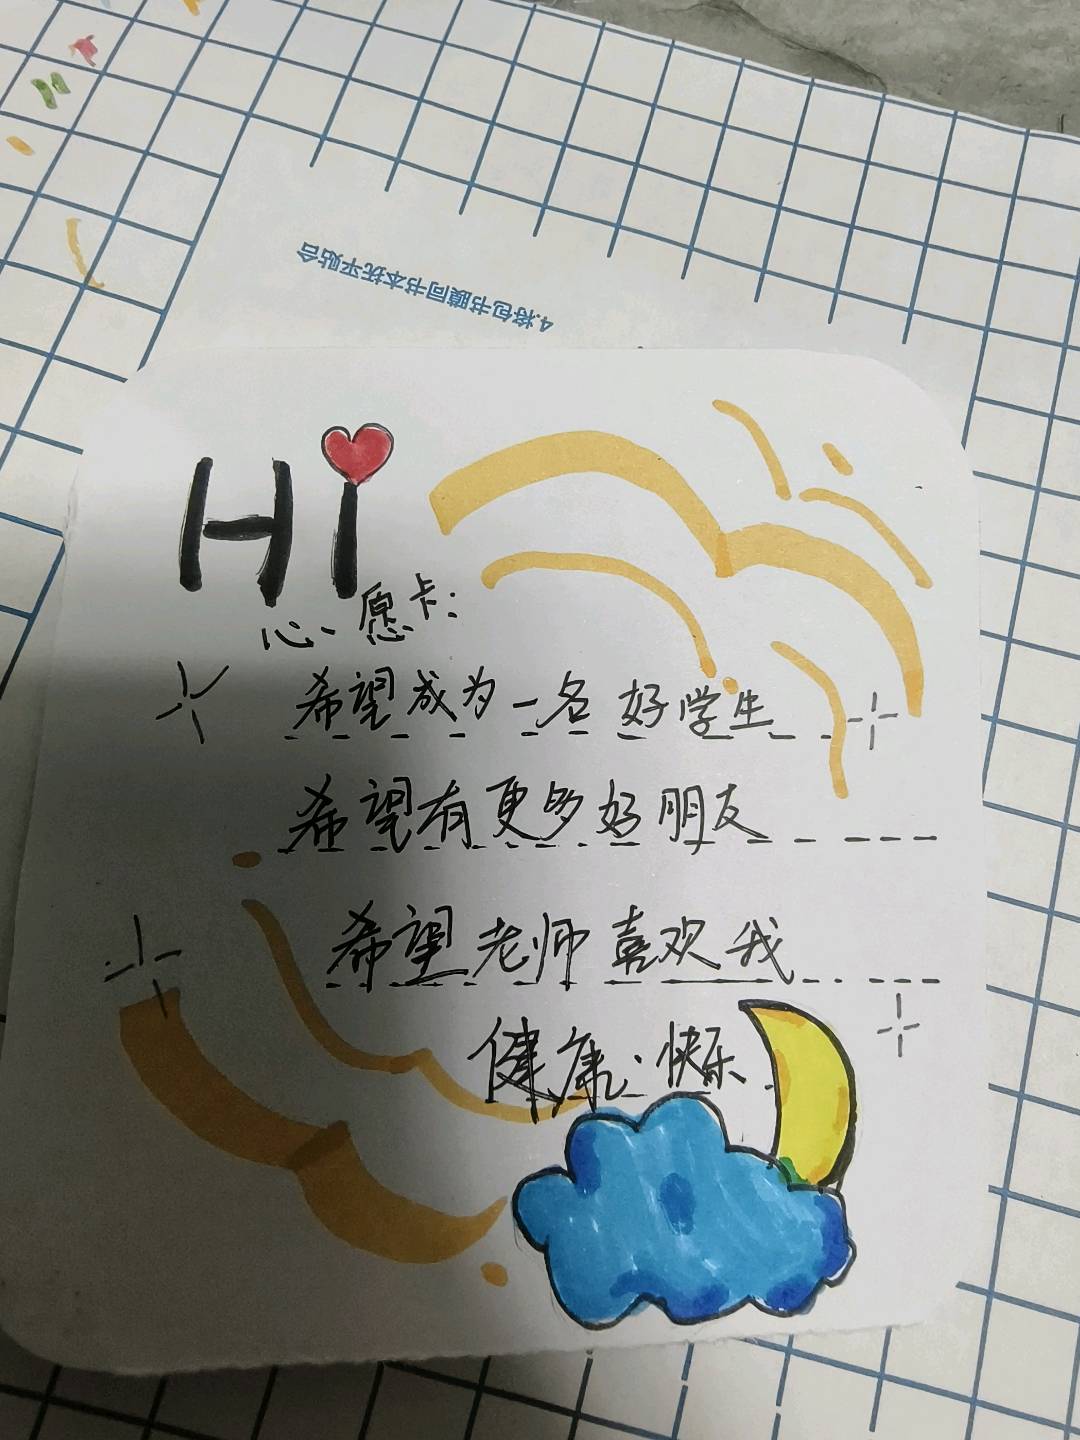 4.将包书膜同书本抚平贴合
Hi
心愿卡:
希望成为一名好学生
希望有更多好朋友
希望老师喜欢我
健康·快乐